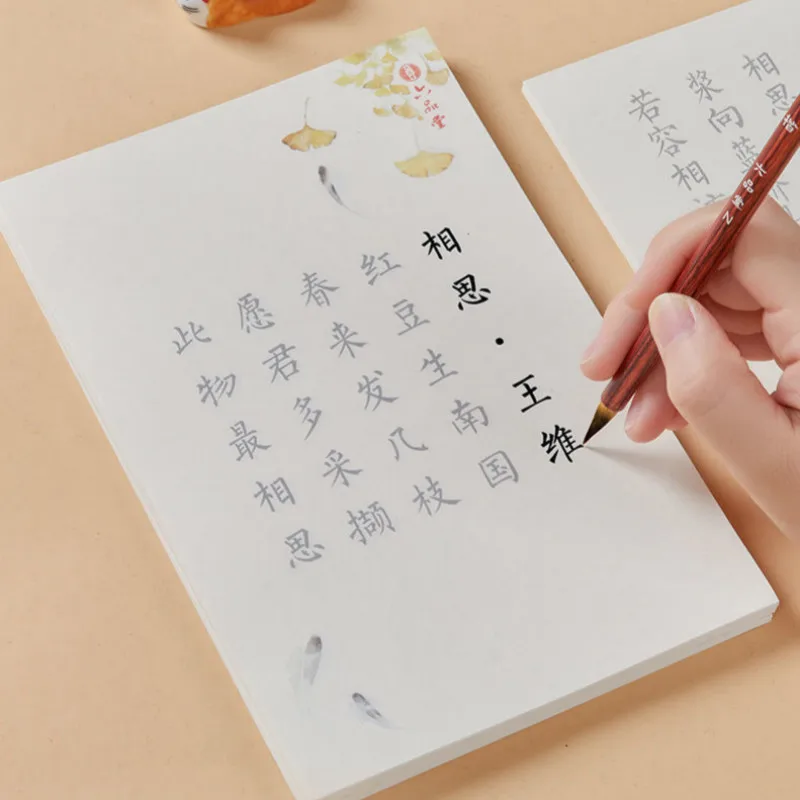 相思·王维
红豆生南国
春来发几枝
愿君多采撷
此物最相思
六品堂
相思
浆向蓝
若容相
六品堂